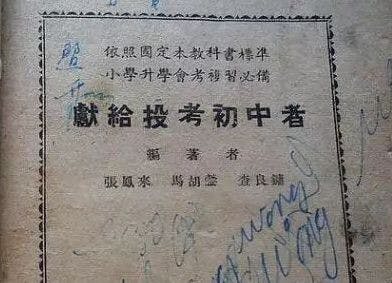 依照國定本教科書標準
小學升學會考複習必備
獻給投考初中者
編著者
張鳳來 馬胡鎣 查良鏞